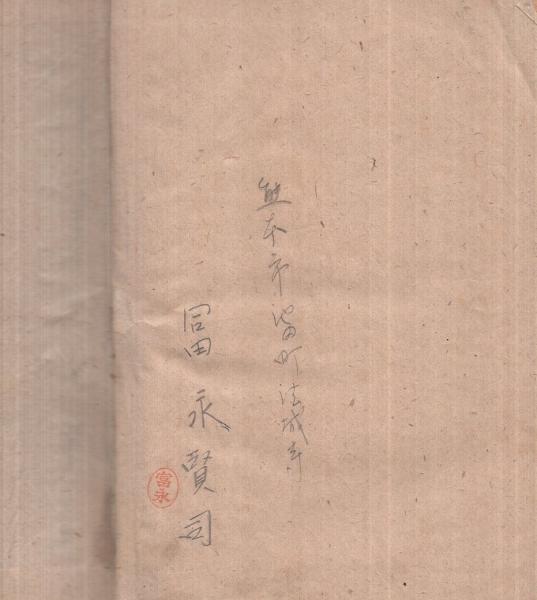 熊本市池田町法城寺
冨永賢司
富永